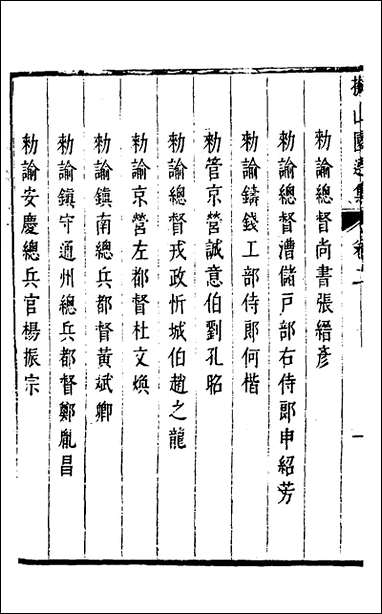 擬山園選集 卷二
一
勅諭總督尚書張縉彥
勅諭總督漕儲戶部右侍郎申紹芳
勅諭鑄錢工部侍郎何楷
勅管京營誠意伯劉孔昭
勅諭總督戎政忻城伯趙之龍
勅諭京營左都督杜文煥
勅諭鎮南總兵都督黃斌卿
勅諭鎮守通州總兵都督鄭胤昌
勅諭安慶總兵官楊振宗